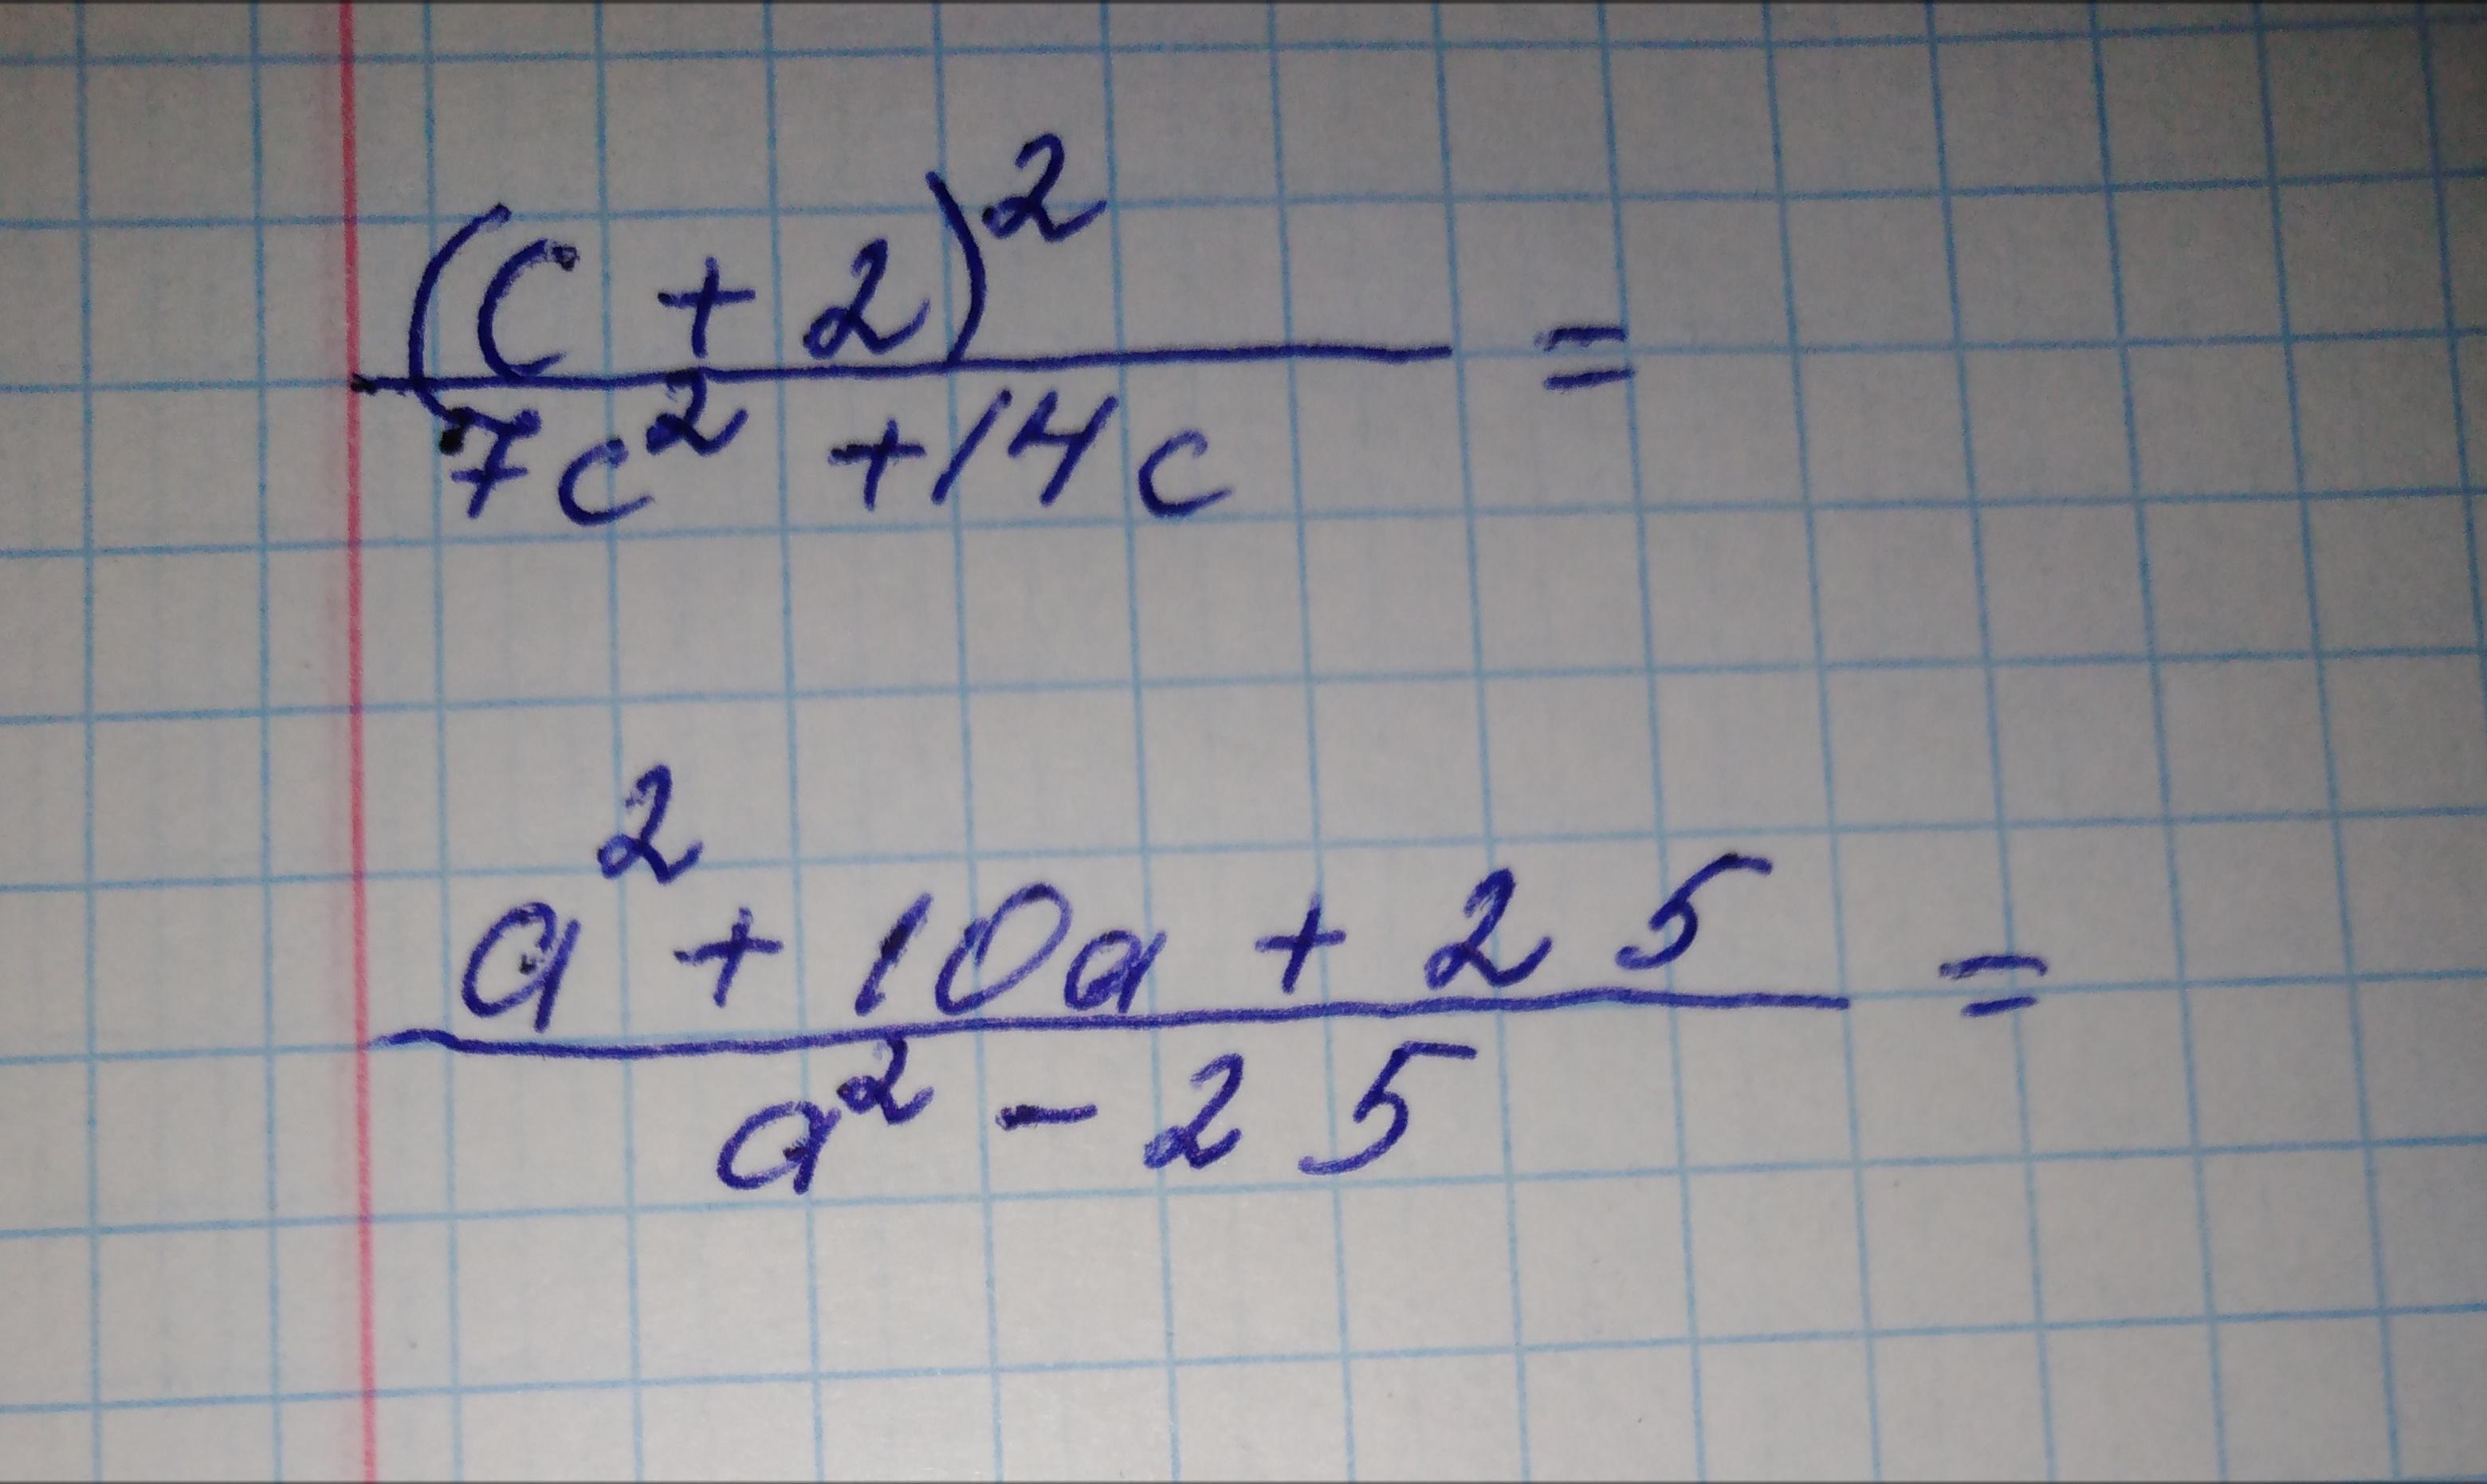 (c + 2)²
7c² + 14c
=
a² + 10a + 25
a² - 25
=